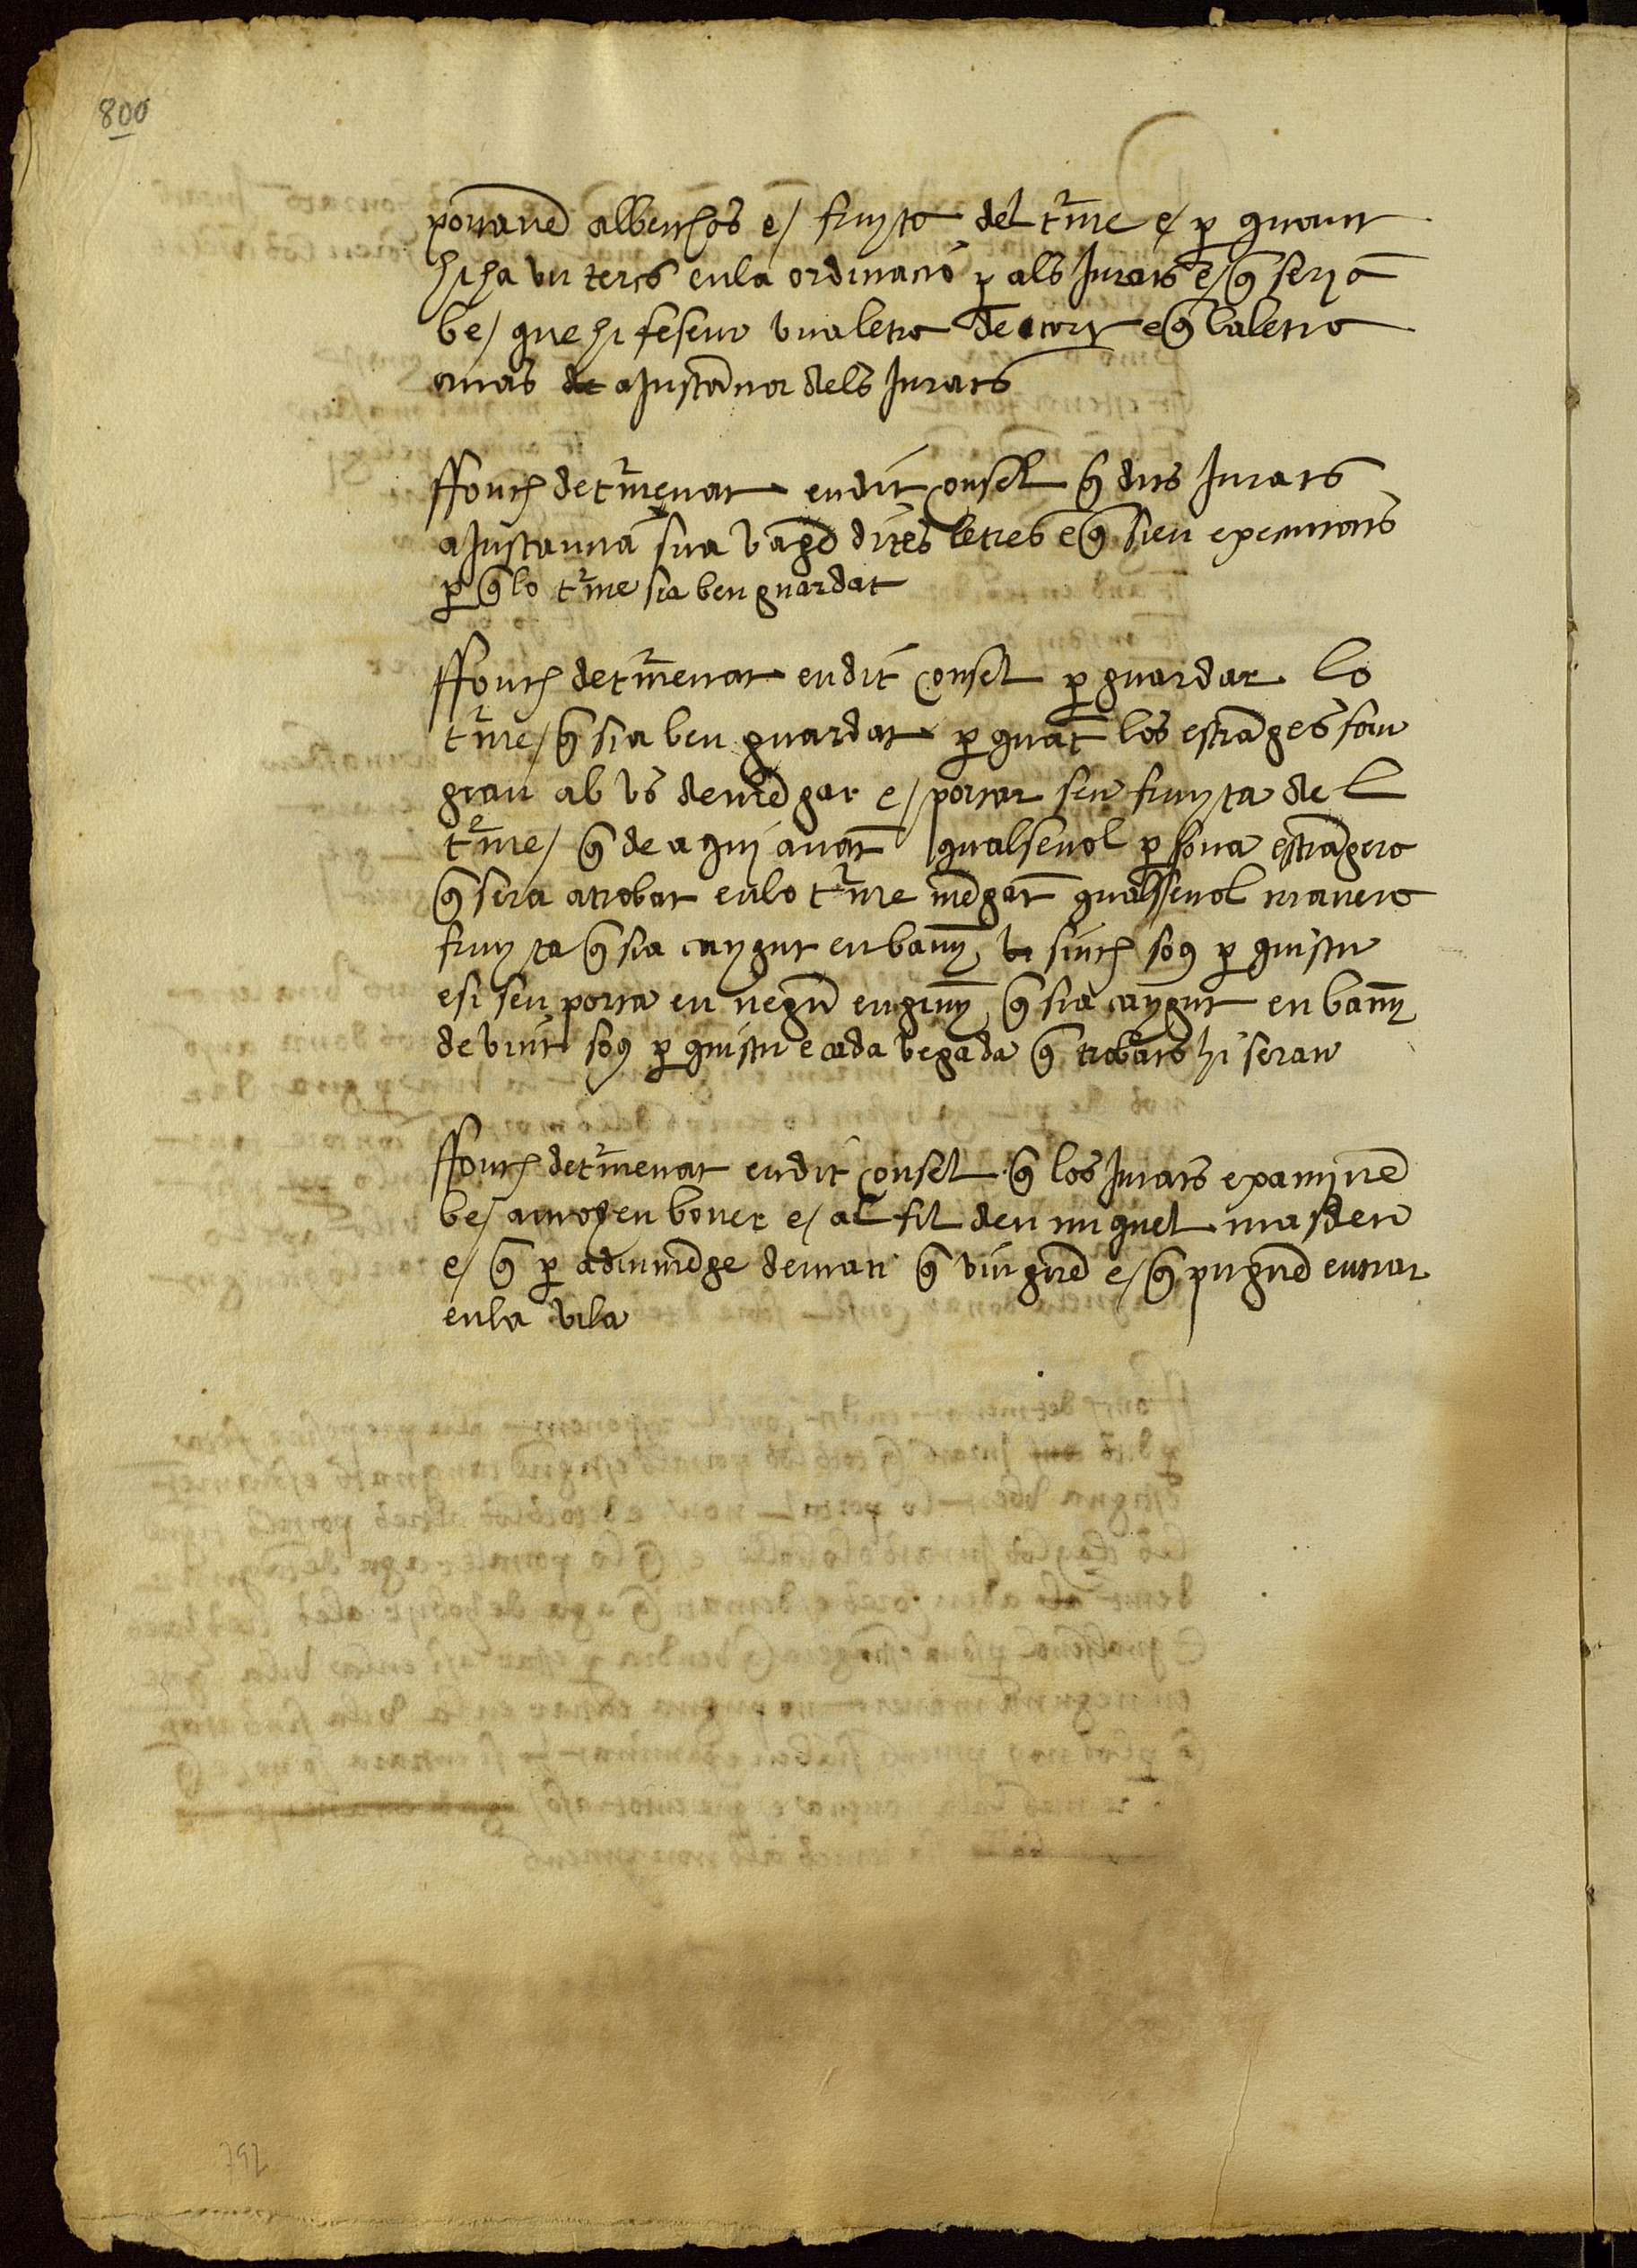 800
portaven alberchos e/ fruyta del t̃me e/ p̱ quant
hi ha vn ters en la ordinacio p̱ als Jurats e/ q̃ seria
be/ que hi fesen vna letra de cort e q̃ la letra
anas a Justãcia dels Jurats
ffonch det̃menat en dit consel q̃ dits Jurats
a Justancia sua vagẽ dites letres e q̃ sien executats
p̱ q̃ lo t̃me sia ben guardat
ffonch det̃menat en dit consel p̱ guardar lo
t̃me/ q̃ sia ben guardat p̱ quãt los estrãges fan
gran abvs de mẽgar e/ portar sen fruyta del
t̃me/ q̃ de aqui auãt qualseuol p̱sona estrãgera
q̃ sera atrobat en lo t̃me mẽgãt qualsseuol manera
fruyta q̃ sia caygut en bann de sinch sos p̱ quistu
e si sen porta en negũ enginy q̃ sia caygut en bann
de vint sos p̱ quistu e cada vegada q̃ trobats hi seran
ffonch det̃menat en dit consel q̃ los Jurats examinẽ
be/ a mosen bouer e/ al fil den miquel masdeu
e/ q̃ p̱ a diumẽge demati q̃ vinguẽ e/ q̃ puguẽ entrar
en la vila
797